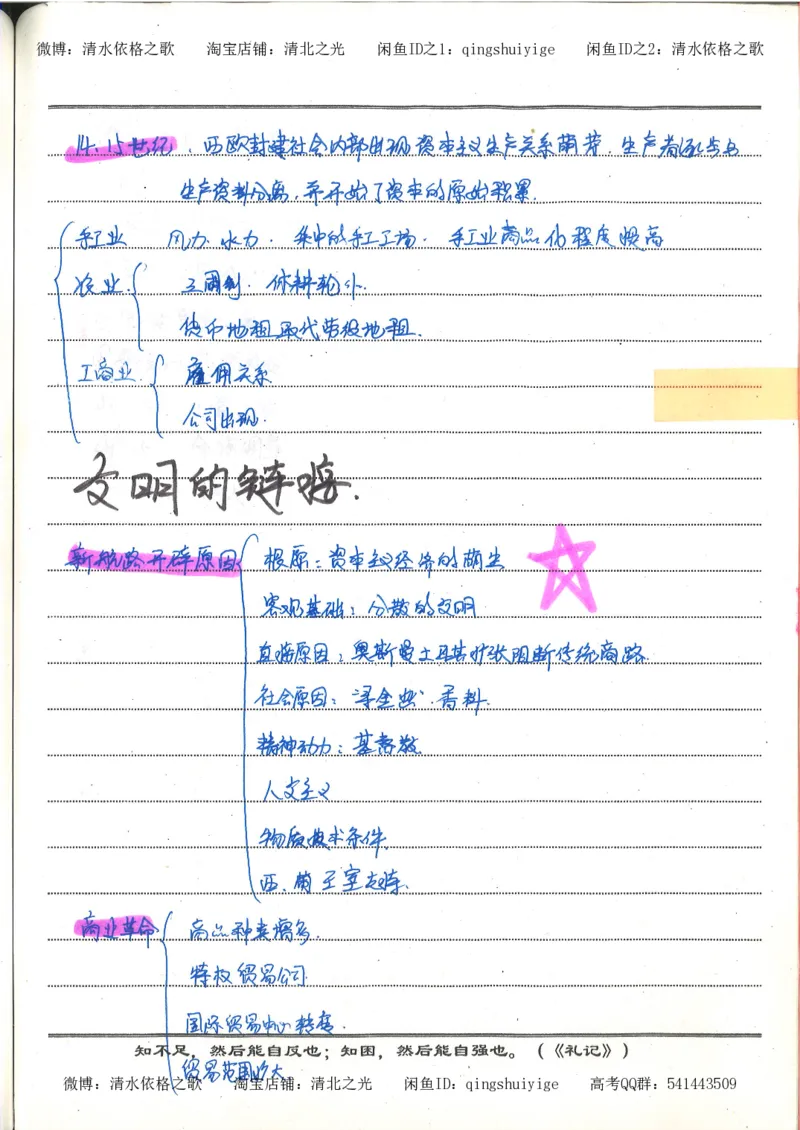 微博：清水依格之歌 淘宝店铺：清北之光 闲鱼ID之1：qingshuiyige 闲鱼ID之2：清水依格之歌
14、15世纪，西欧封建社会内部出现资本主义生产关系萌芽，生产者逐步与
生产资料分离，并开始了资本的原始积累．
手工业 风力．水力．集中的手工工场．手工业商品化程度提高
农业．三圃制．休耕轮作．
货币地租取代劳役地租．
工商业 雇佣关系
公司出现．
文明的链接．
新航路开辟原因 根源：资本主义经济的萌生
客观基础：分散的文明
直接原因：奥斯曼土耳其扩张阻断传统商路．
社会原因：“寻金热”．香料．
精神动力：基督教
人文主义
物质技术条件．
西、葡王室支持．
商业革命 商品种类增多．
特权贸易公司
国际贸易中心转移．
知不足，然后能自反也；知困，然后能自强也。（《礼记》）
贸易范围扩大
微博：清水依格之歌 淘宝店铺：清北之光 闲鱼ID：qingshuiyige 高考QQ群：541443509